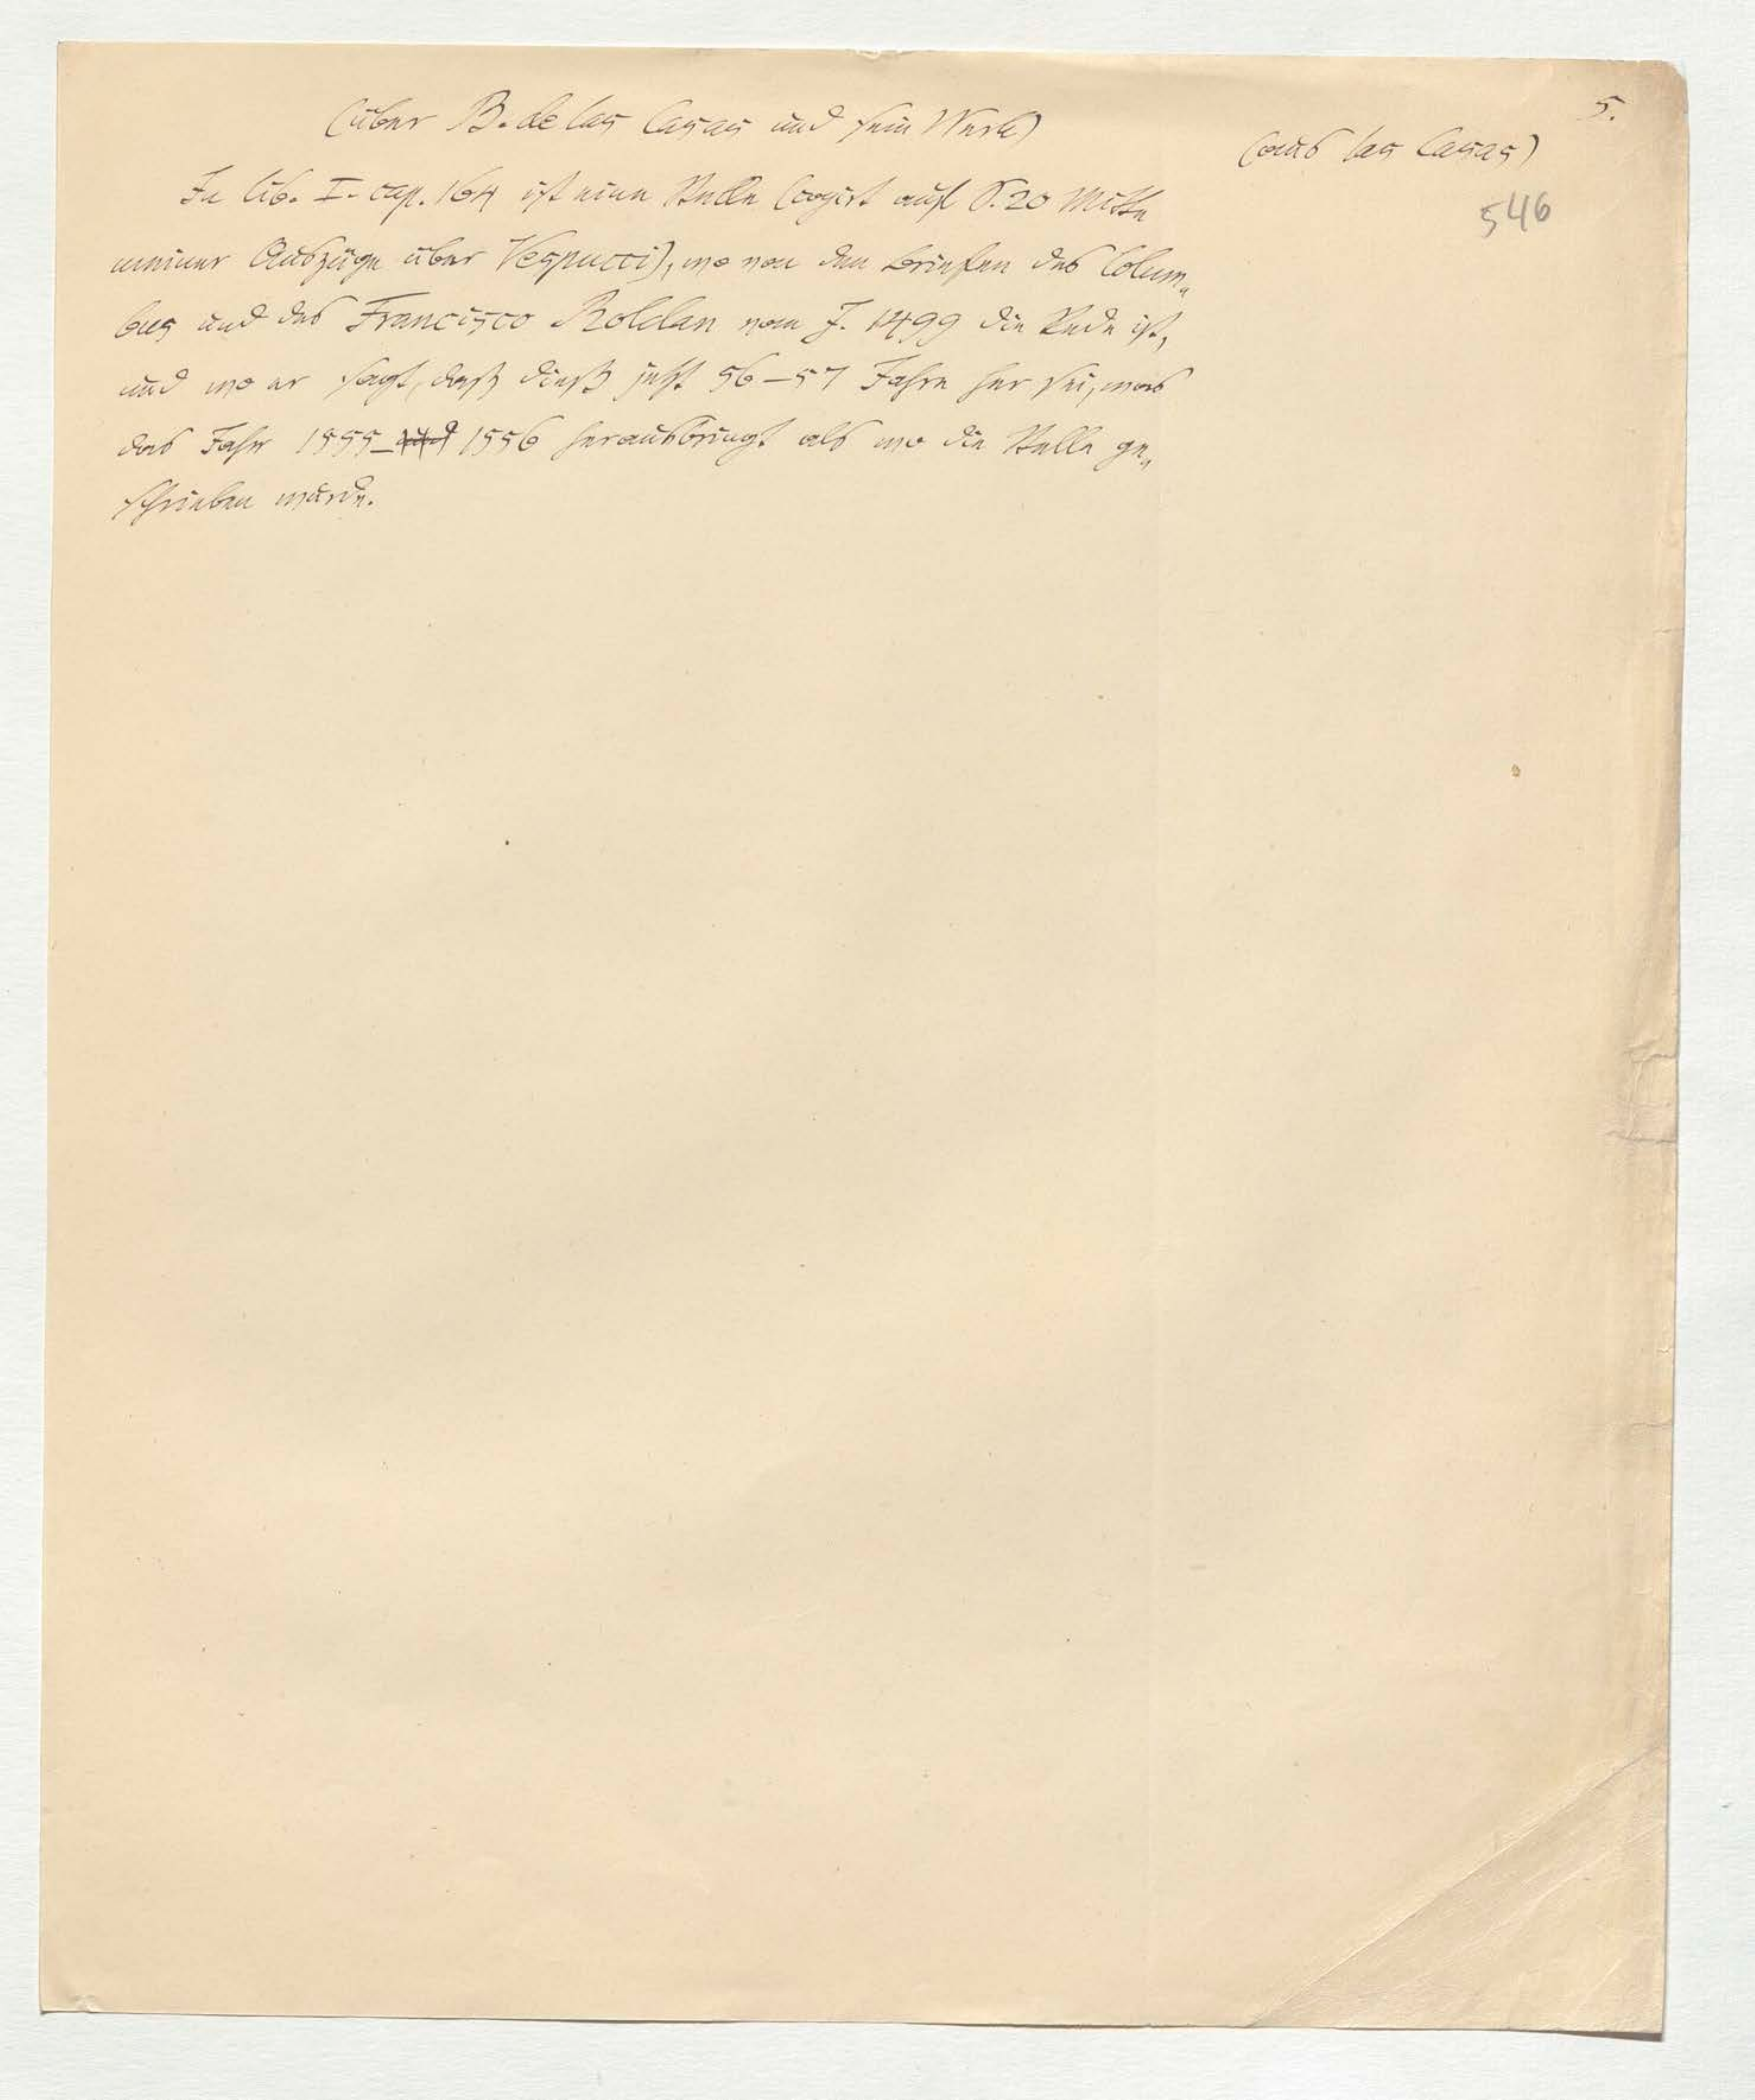 5.
(über B. de las Casas und sein Werk)
(aus las Casas)
546
In lib. I. cap. 164 ist eine Stelle (copirt auf S. 20 Mitte
meiner Auszüge über Vespucci), wo von den Briefen des Colum„
bus und des Francisco Roldan vom J. 1499 die Rede ist,
und wo er sagt, daß dieß jetzt 56–57 Jahre her sei, was
das Jahr 1555– und 1556 herausbringt als wo die Stelle ge„
schrieben wurde.